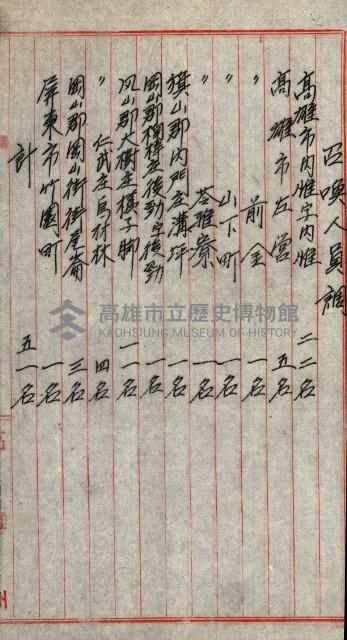 召喚人員調
高雄市內惟字內惟 二二名
高雄市左營 五名
〃 前金 一名
〃 山下町 一名
〃 苓雅寮 一名
旗山郡內門庄溝坪 一名
岡山郡楠梓庄後勁字後勁 一名
鳳山郡大樹庄檨子脚 一一名
〃 仁武庄烏材林 四名
岡山郡岡山街街尾崙 三名
屏東市竹園町 一名
計 五一名
高雄市立歷史博物館
KAOHSIUNG MUSEUM OF HISTORY